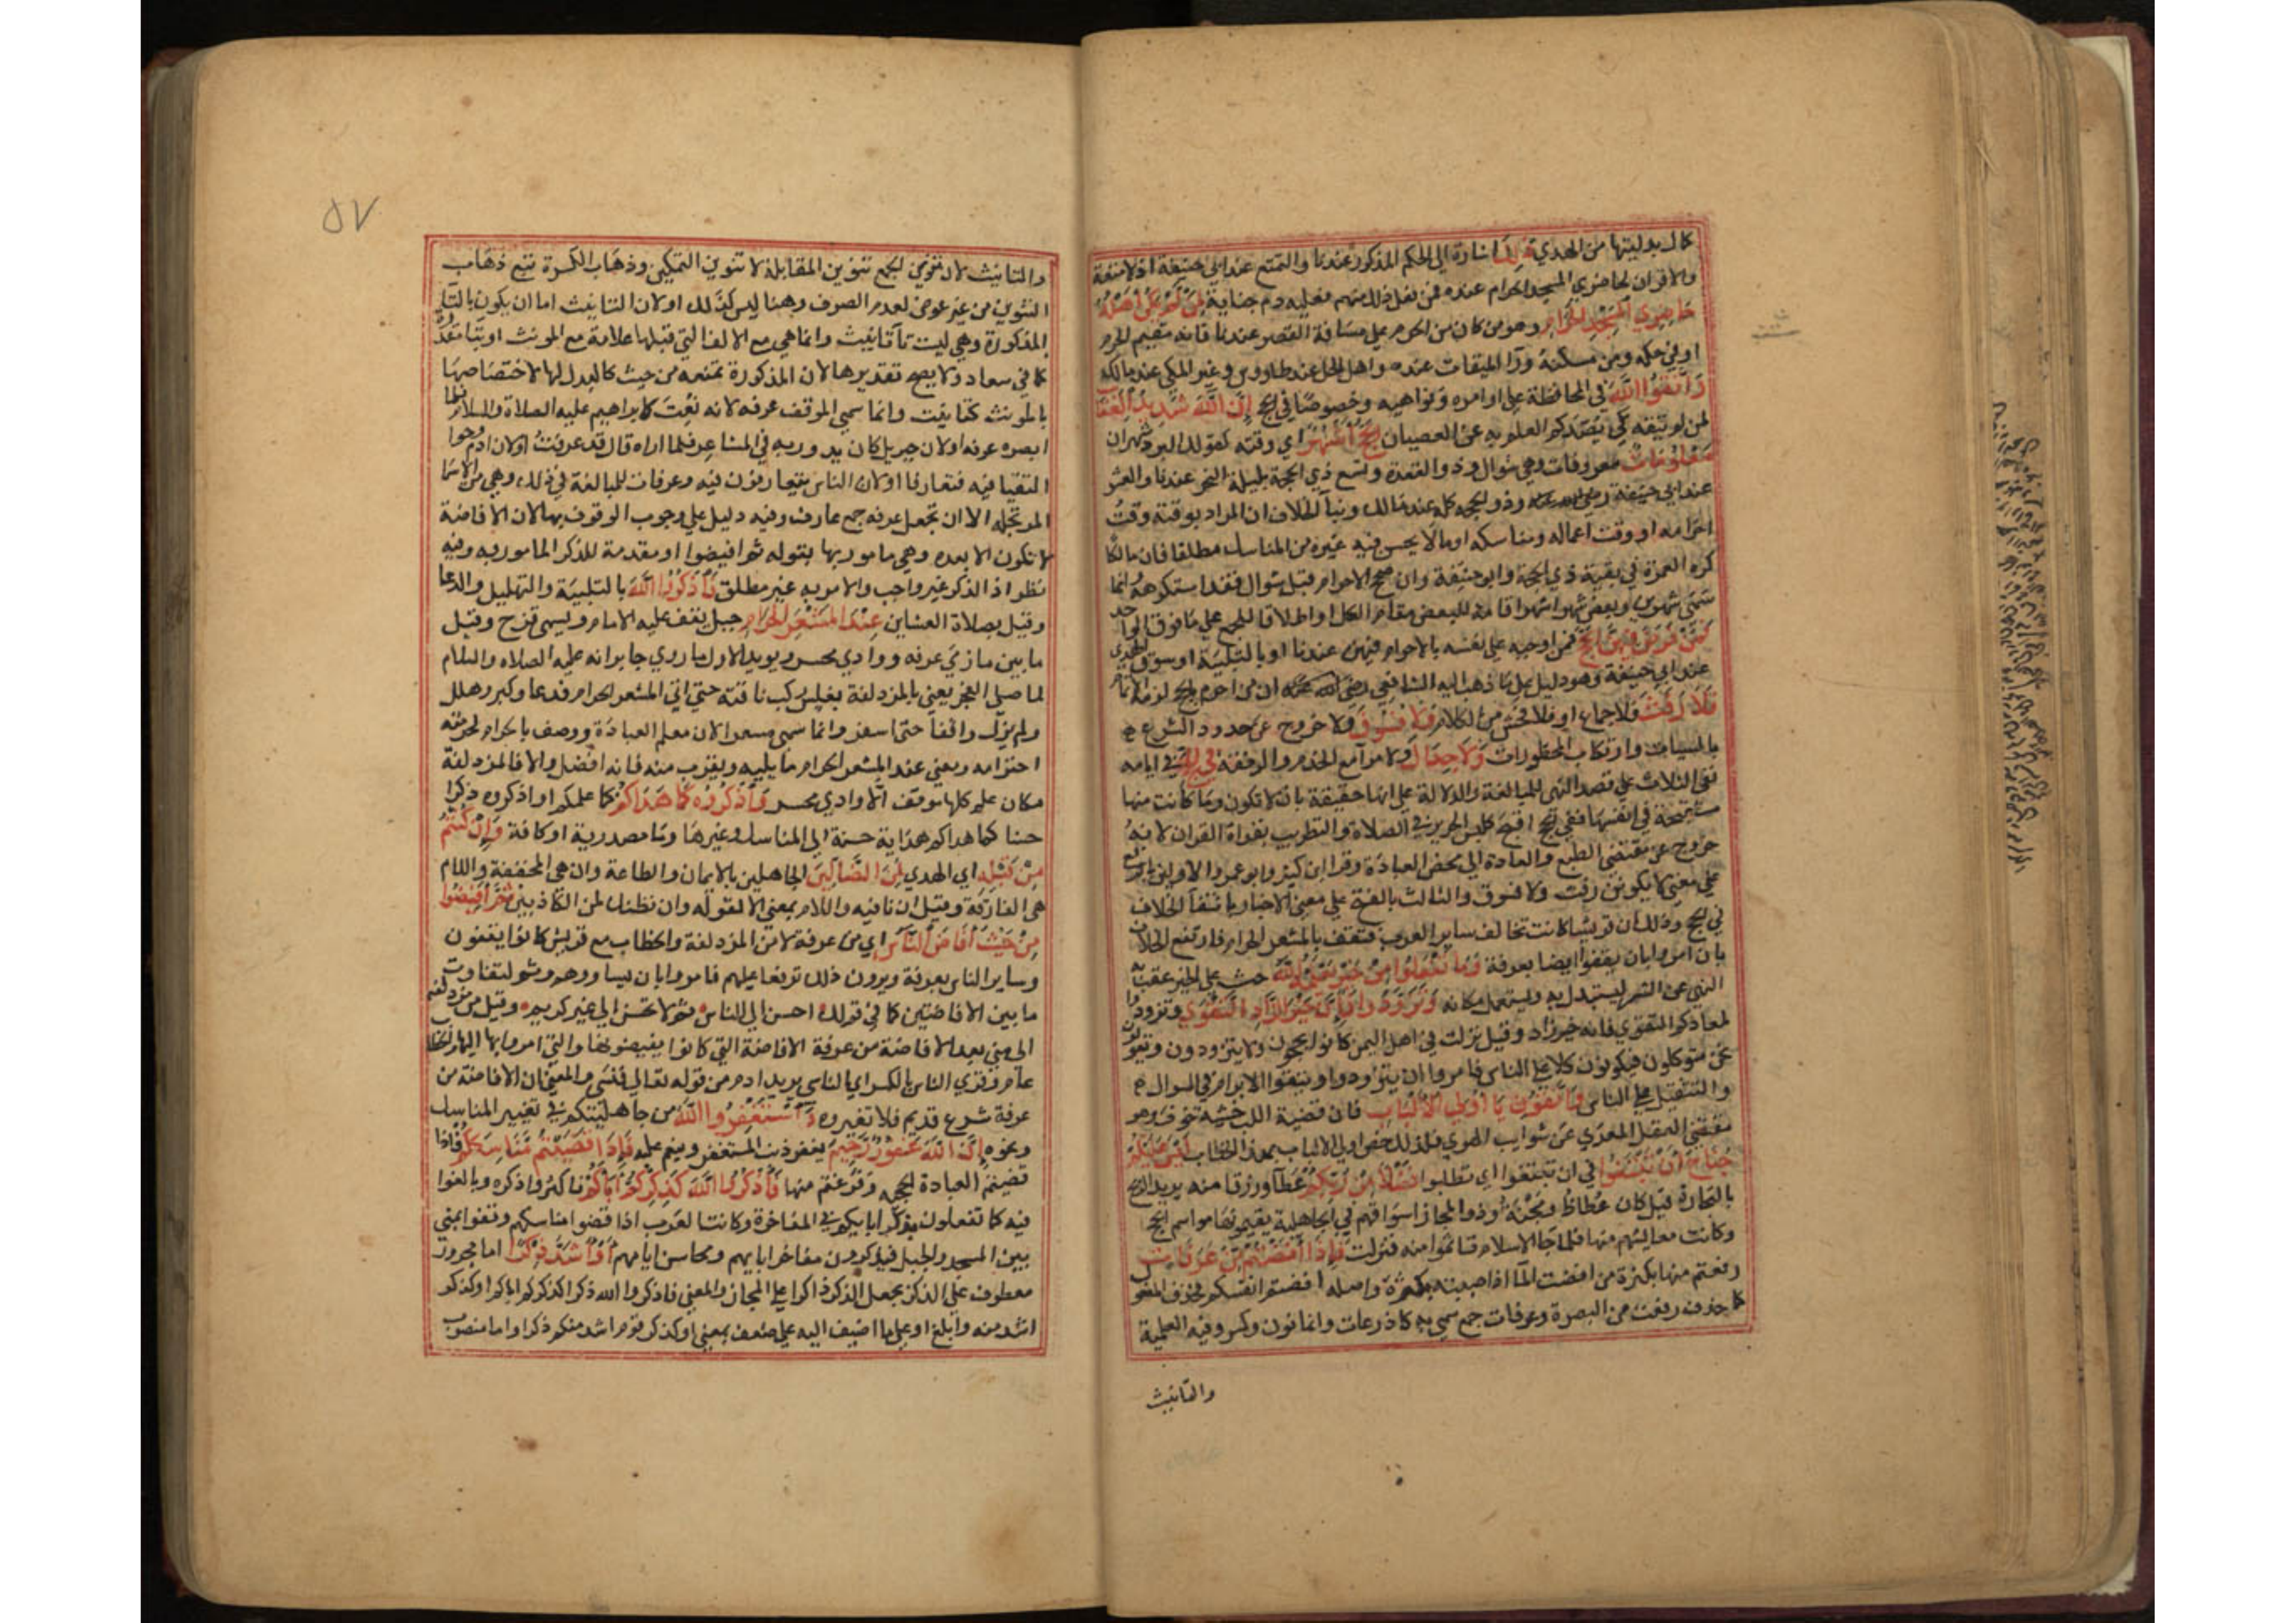 كال بدليتها من الهدي ذلك اشارة الي الحكم المذكور عندنا والتمتع عند ابي حنيفة اذ لا متعة
والاقران لحاضري المسجد الحرام عنده فمن فعل ذلك منهم فعليه دم جناية لمن لم يكن اهله
حاضري المسجد الحرام وهو من كان من الحرم علي مسافة القصر عندنا فانه مقيم الحرم
او في حكمه ومن مسكنه ورآ الميقات عنده واهل الحل عند طاووس وغير المكي عند مالك
واتقوا الله في المحافظة علي اوامره ونواهيه وخصوصا في الحج ان الله شديد العقاب
لمن لم يتقه كي يصدكم العلم به عن العصيان الحج اشهر اي وقته كقولك البرد شهران
معلومات معروفات وهي شوال وذو القعدة وتسع ذي الحجة بليلة النحر عندنا والعشر
عند ابي حنيفة رضي الله عنه وذو الحجه كله عند مالك وبنآ الخلاف ان المراد بوقته وقت
احرامه او وقت اعماله ومناسكه او ما لا يحسن فيه غيره من المناسك مطلقا فان مالكا
كره العمرة في بقية ذي الحجة وابو حنيفة وان صحح الاحرام قبل شوال فقد استكرهه وانما
سمي شهرين وبعض شهر اشهرا اقامة للبعض مقام الكل او اطلاقا للجمع علي ما فوق الواحد
فمن فرض فيهن الحج فمن اوجبه علي نفسه بالاحرام فيهن عندنا او بالتلبية او سوق الهدي
عند ابي حنيفة وهو دليل علي ما ذهب اليه الشافعي رضي الله عنه ان من احرم بالحج لزمه الاتمام
فلا رفث فلا جماع او فلا فحش من الكلام ولا فسوق ولا خروج عن حدود الشرع
بالسيات وارتكاب المحظورات ولا جدال ولا مرآ مع الخدم والرفقة في الحج في ايامه
نفي الثلاث علي قصد النهي للمبالغة والدلالة علي انها حقيقة بان لا تكون وما كانت منها
مستقبحة في انفسها ففي الحج اقبح كلبس الحرير في الصلاة والتطريب بقراة القران لانه
خروج عن مقتضي الطبع والعادة الي محض العبادة وقرا ابن كثير وابو عمرو الاولين بالرفع
علي معني لا يكونن رفث ولا فسوق والثالث بالفتح علي معني الاخبار بانتفآ الخلاف
في الحج وذلك ان قريشا كانت تخالف ساير العرب فتقف بالمشعر الحرام فارتفع الخلاف
بان امروا بان يقفوا ايضا بعرفة وما تفعلوا من خير يعلمه الله حث علي الخير عقب به
النهي عن الشر ليستبدل به وليستعمل مكانه وتزودوا فان خير الزاد التقوي وتزودوا
لمعادكم التقوي فانه خير زاد وقيل نزلت في اهل اليمن كانوا يحجون ولا يتزودون ويقولون
نحن متوكلون فيكونون كلا علي الناس فامروا ان يتزودوا ويتقوا الابرام في السوال
والتثقيل علي الناس واتقون يا اولي الالباب فان قضية اللب خشيه تخوف وهو
مقتضي العقل المعري عن شوايب الهوي فلذلك خص اولي الالباب بهذا الخطاب ليس عليكم
جناح ان تبتغوا في ان تبتغوا اي تطلبوا فضلا من ربكم عطآ ورزقا منه يريد الربح
بالتجارة قيل كان عكاظ ومجنة وذو المجاز اسواقهم في الجاهلية يقيمونها مواسم الحج
وكانت معايشهم منها فلما جا الاسلام تاثموا منه فنزلت فاذا افضتم من عرفات
دفعتم منها بكثرة من افضت المآ اذا صببته بكثرة واصله افضتم انفسكم فحذف المفعول
كما حذف دفعت من البصرة وعرفات جمع سمي به كاذرعات وانما نون وكسر وفيه العلمية
والتانيث
٥٧
والتانيث لان تنوين الجمع تنوين المقابلة لا تنوين التمكين وذهاب الكسرة تبع ذهاب
التنوين من غير عوض لعدم الصرف وهنا ليس كذلك او لان التانيث اما ان يكون بالتآ
المذكورة وهي ليست تآ تانيث وانما هي مع الالف التي قبلها علامة جمع المونث او بتا مقدرة
كما في سعاد ولا يصح تقديرها لان المذكورة تمنعه من حيث كالبدل لها لاختصاصها
بالمونث كتا بنت وانما سمي الموقف عرفه لانه نعت لابراهيم عليه الصلاة والسلام فلما
ابصره عرفه او لان جبريل كان يدور به في المشاعر فلما اراه قال قد عرفت او لان ادم وحوا
التقيا فيه فتعارفا او لان الناس يتعارفون فيه وعرفات للمبالغة في ذلك وهي من الاسما
المرتجله الا ان تجعل عرفه جمع عارف وفيه دليل علي وجوب الوقوف بها لان الافاضة
لا تكون الا بعده وهي مامور بها بقوله ثم افيضوا او مقدمة للذكر المامور به وفيه
نظر اذ الذكر غير واجب والامر به غير مطلق فاذكروا الله بالتلبية والتهليل والدعا
وقيل بصلاة العشاين عند المشعر الحرام جبل يقف عليه الامام ويسمي قزح وقيل
ما بين مازمي عرفه ووادي محسر ويويد الاول ما روي جابر انه عليه الصلاه والسلام
لما صلي الفجر يعني بالمزدلفة بغلس ركب ناقته حتي اتي المشعر الحرام فدعا وكبر وهلل
ولم يزل واقفا حتي اسفر وانما سمي مشعرا لانه معلم العبادة ووصف بالحرام لحرمته
احترامه ومعني عند المشعر الحرام مما يليه ويقرب منه فانه افضل والا فالمزدلفة
كلها موقف الا وادي محسر واذكروه كما هداكم كما علمكم او اذكروه ذكرا
حسنا كما هداكم هداية حسنة الي المناسك وغيرها وما مصدرية او كافة وان كنتم
من قبله اي الهدي لمن الضالين الجاهلين بالايمان والطاعة وان هي المخففة واللام
هي الفارقة وقيل ان نافيه واللام بمعني الا كقوله وان نظنك لمن الكاذبين ثم افيضوا
من حيث افاض الناس اي من عرفة لا من المزدلفة والخطاب مع قريش كانوا يقفون
وساير الناس بعرفة ويرون ذلك ترفعا عليهم فامروا بان يساووهم وثم لتفاوت
ما بين الافاضتين كما في قولك احسن الي الناس ثم لا تحسن الي غير كريم وقيل من مزدلفة
الي مني بعد الافاضة من عرفة الافاضة التي كانوا يفيضونها والتي امروا بها
عام وقري الناس بالكسر اي الناسي يريد ادم من قوله تعالي فنسي والمعني ان الافاضة من
عرفة شرع قديم فلا تغيروه واستغفروا الله من جاهليتكم في تغيير المناسك
ونحوه ان الله غفور رحيم يغفر ذنب المستغفر وينعم عليه فاذا قضيتم مناسككم فاذا
قضيتم العبادة الحجيه وفرغتم منها فاذكروا الله كذكركم اباكم فاكثروا ذكره وبالغوا
فيه كما تفعلون بذكر ابايكم في المفاخرة وكانت العرب اذا قضوا مناسكهم وقفوا بمني
بين المسجد والجبل فيذكرون مفاخر ابايهم ومحاسن ايامهم او اشد ذكرا اما مجرور
معطوف علي الذكر بجعل الذكر ذاكرا علي المجاز والمعني فاذكروا الله ذكرا كذكركم اباكم او كذكر
اشد منه وابلغ او علي ما اضيف اليه علي ضعف بمعني او كذكر قوم اشد منكم ذكرا واما منصوب